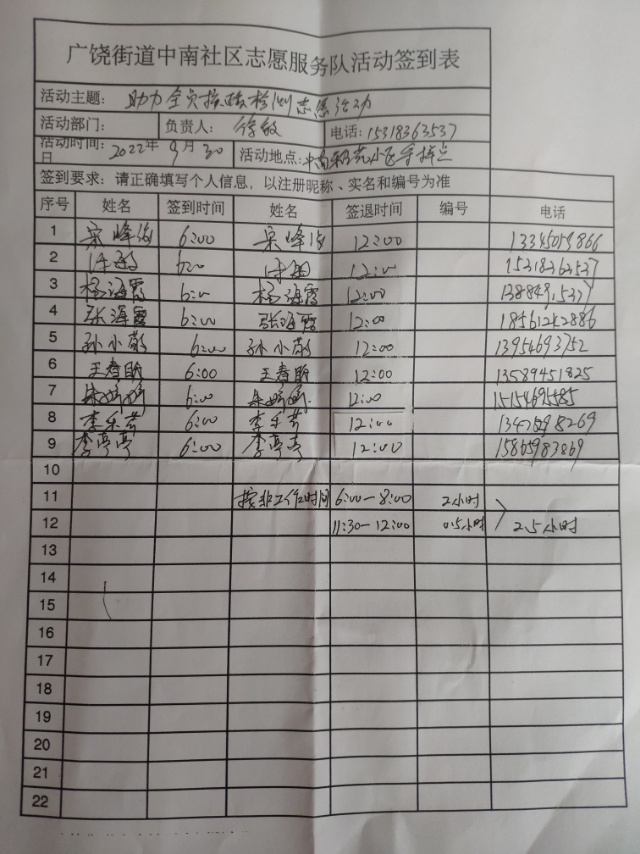 广饶街道中南社区志愿服务队活动签到表
活动主题: 助力全员核酸检测志愿活动
活动部门: 负责人: 徐敏 电话: 15318363537
活动时间: 2022年9月30日 活动地点:
签到要求: 请正确填写个人信息，以注册昵称、实名和编号为准
序号 姓名 签到时间 姓名 签退时间 编号 电话
1 6:00 12:00
2 6:00 12:00 15318363537
3 杨海霞 6:00 杨海霞 12:00
4 张海霞 6:00 张海霞 12:00 18561242886
5 孙小敏 6:00 孙小敏 12:00 13954693752
6 6:00 12:00 13589451825
7 6:00 12:00 15154691585
8 李乐芳 6:00 李乐芳 12:00
9 李亭亭 6:00 李亭亭 12:00 15865983869
10
11 按非工作时间 6:00-8:00 2小时
12 11:30-12:00 0.5小时 2.5小时
13
14
15
16
17
18
19
20
21
22